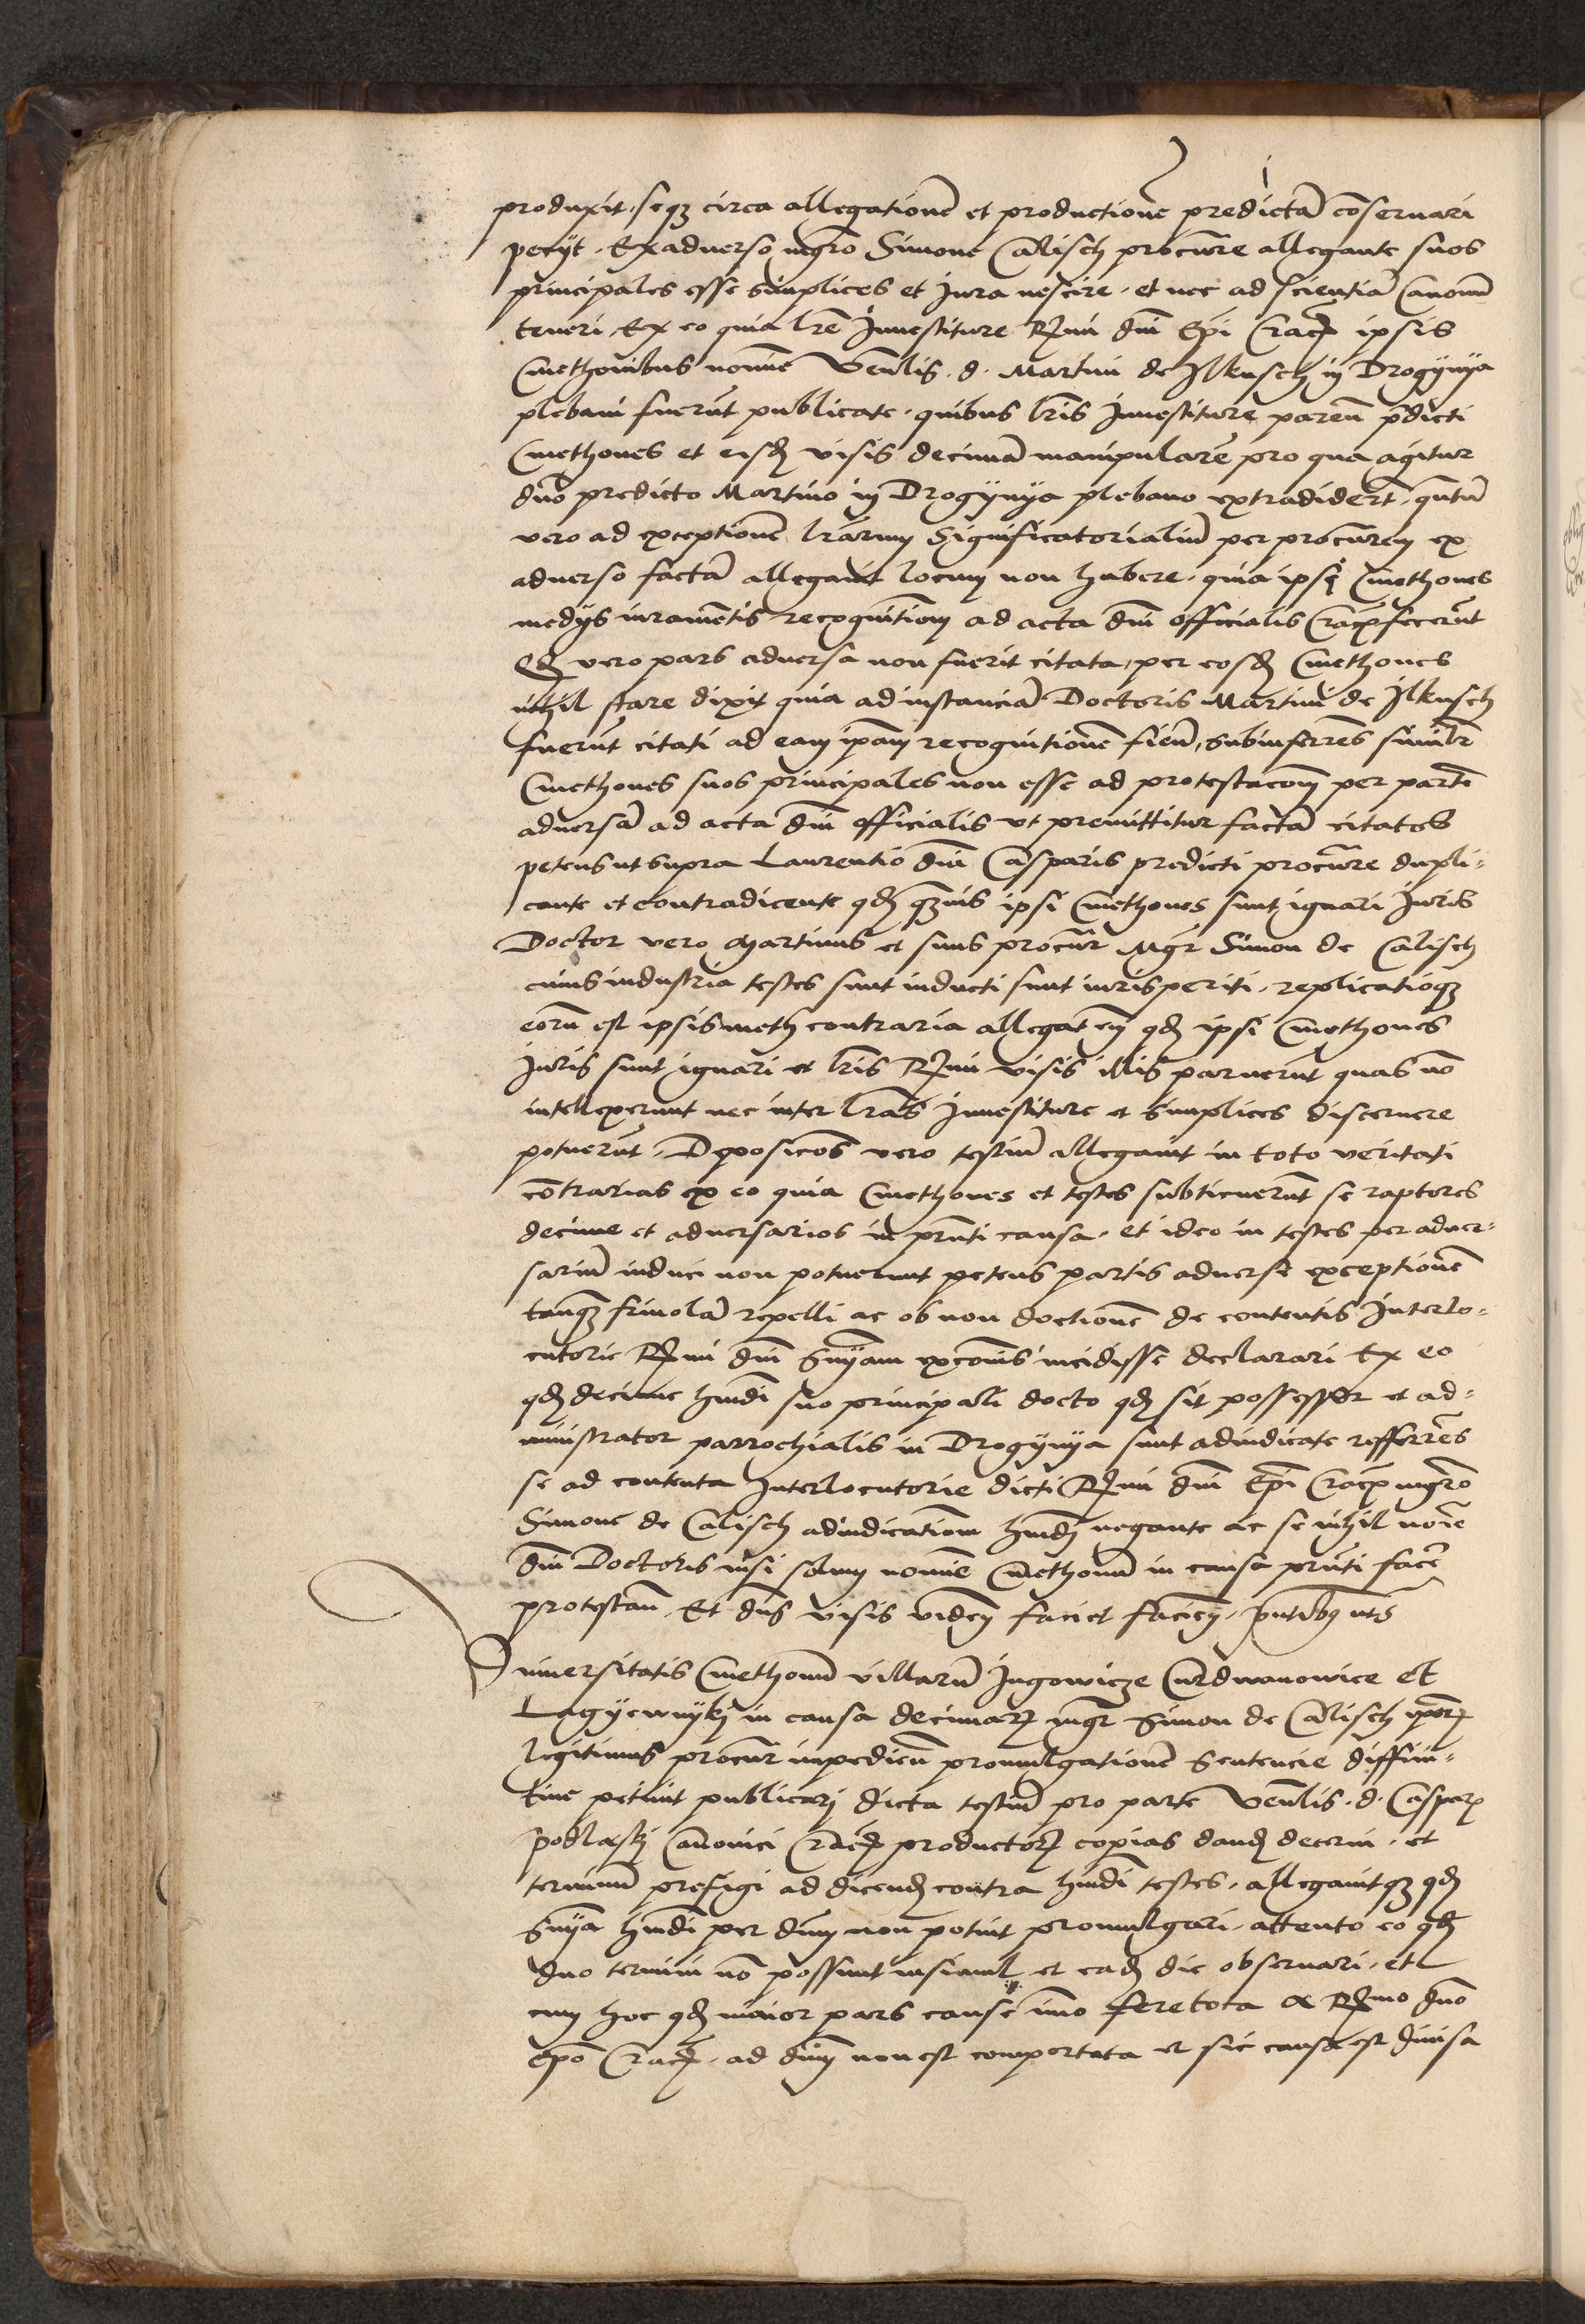 produxit, seqȝ circa allegationē et productionē predictā cōseruari
petijt. Ex aduerso mgrō Simone Calisch procur̄e allegante suos
principales esse simplices et Iura nescire, et nec ad scientiā Canonū
teneri, Ex eo quia lr̄e Inuestiture Rm̄i dn̄i Epī Crac̄ ipsis
Cmethonibus nomīe Ven̄lis d. Martini de Ilkusch in Drogÿnÿa
plebani fuerūt publicate, quibus lr̄is Inuestiture paren̄ p̄dicti
Cmethones et eisd̄ visis decimā manipularē pro qua agitur
dn̄o predicto Martino in Drogÿnÿa plebano extradider̄t, qn̄tū
vero ad exceptionē lr̄arum Significatorialiū per procur̄em ex
aduerso factā allegauit locum non habere, quia ipsi Cmethones
medijs iuramētis recognitiom̄ ad acta dn̄i officialis Crac̄ fecerūt
Qd̄ vero pars aduersa non fuerit citata, per eosd̄ Cmethones
nihil stare dixit quia ad instanciā Doctoris Martini de Ilkusch
fuerūt citati ad eam ip̄am recognitionē fien̄, subinferēs simil̄r
Cmethones suos principales non esse ad protestacōm̄ per partē
aduersā ad acta dn̄i officialis vt premittitur factā citatos
petens ut supra Laurentio dn̄i Casparis predicti procur̄e dupli-
cante et contradicente qd̄ qȝuis ipsi Cmethones sunt ignari Iuris
Doctor vero Martinus et suus procur̄ Mgr̄ Simon de Calisch
cuius industria testes sunt inducti sunt iurisperiti, replicatioqȝ
eorū est ipsismeth contraria allegat em̄ qd̄ ipsi Cmethones
Iuris sunt ignari et lr̄is Rm̄i visis illis paruerūt quas nō
intellexerunt nec inter lr̄as Inuestiture et simplices discernere
potuerūt, Deposicōs vero testiū allegauit in toto veritati
cōtrarias ex eo quia Cmethones et testes subticuerūt se raptores
decime et aduersarios in prn̄ti causa, et ideo in testes per aduer-
sariū induci non potuerunt petens partis aduerse exceptionē
tanqȝ friuolā repelli ac ob non doctionē de contentis Interlo-
cutorie Rm̄i dn̄i Sn̄iam excōnis incidisse declarari Ex eo
qd̄ decime hm̄di suo principali docto qd̄ sit possessor et ad-
ministrator parrochialis in Drogÿnÿa sunt adiudicate refferēs
se ad contenta Interlocutorie dicti Rm̄i dn̄i Epī Crac̄ mgrō
Simone de Calisch adiudicatiom̄ hm̄di negante ac se nihil noīe
dn̄i Doctoris nisi solum nomīe Cmethonū in causa prn̄ti facē
protestan̄, Et dn̄s visis viden̄ faciet facien̄, prn̄tibȝ vts̄
Vniuersitatis Cmethonū villarū Jugowicze Curdwanowice et
Lagÿewnÿkj in causa decimarȝ mgr̄ Simon de Calisch ip̄orȝ
legitimus procur̄ impedien̄ promulgationē Sentencie diffini-
tiue petiuit publicari dicta testiū pro parte Ven̄lis d. Casparȝ
Podlaskj Canonici Crac̄ productorȝ copias dand̄ decerni, et
terminū prefigi ad dicend̄ contra hm̄di testes, allegauitqȝ qd̄
Sn̄ia hm̄di per dn̄m non potuit promulgari, attento eo qd̄
duo termini nō possunt insimul et ead̄ die obseruari, et
cum hoc qd̄ maior pars cause īmo fere tota a Rm̄o dn̄o
epō Crac̄, ad dn̄m non est comportata et sic causa est diuisa